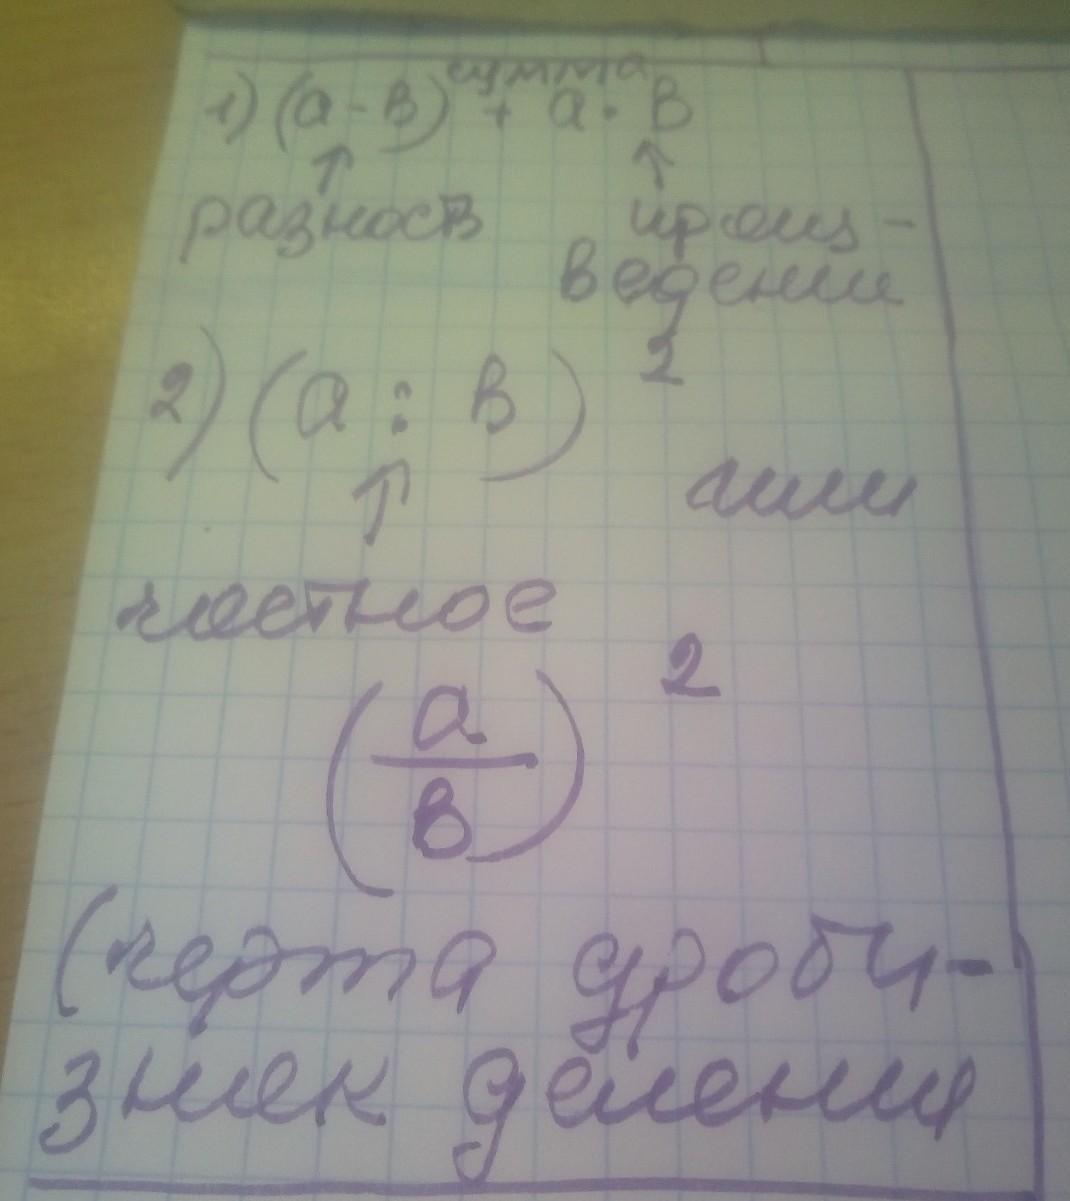 сумма
1) (а - в) + а · в
разность произ-
ведении
2) (а : в)²
или
частное
(а/в)²
(черта дроби-
знак деления